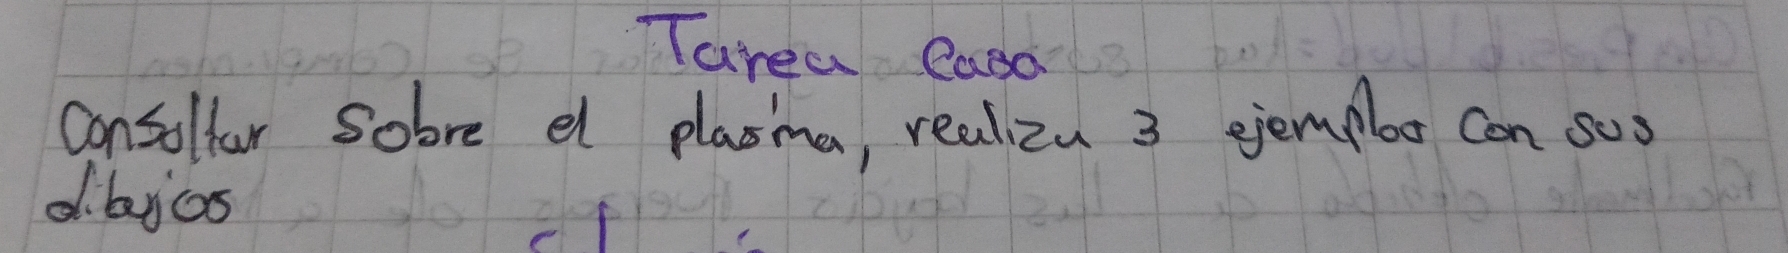 Tarea Casa
Consultar sobre el plasma, realiza 3 ejemplos con sus
dibujos